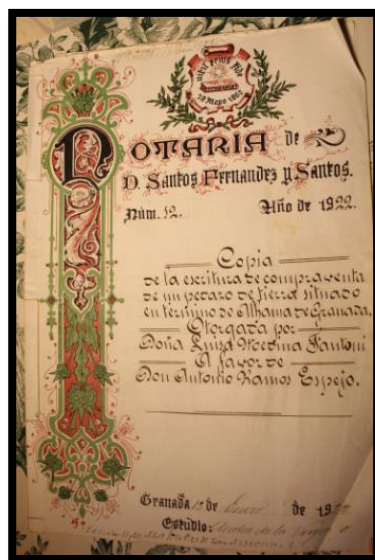 NIHIL PRIUS FIDE
28 Mayo 1862
NOTARIA de
D. Santos Fernandez y Santos.
Núm. 12. Año de 1922.
Copia
de la escritura de compraventa
de un pedazo de tierra situado
en término de Alhama de Granada.
Otorgada por
Doña Luisa Medina Fantoni
A favor de
Don Antonio Ramos Espejo.
Granada de Enero de 19
Estudio: